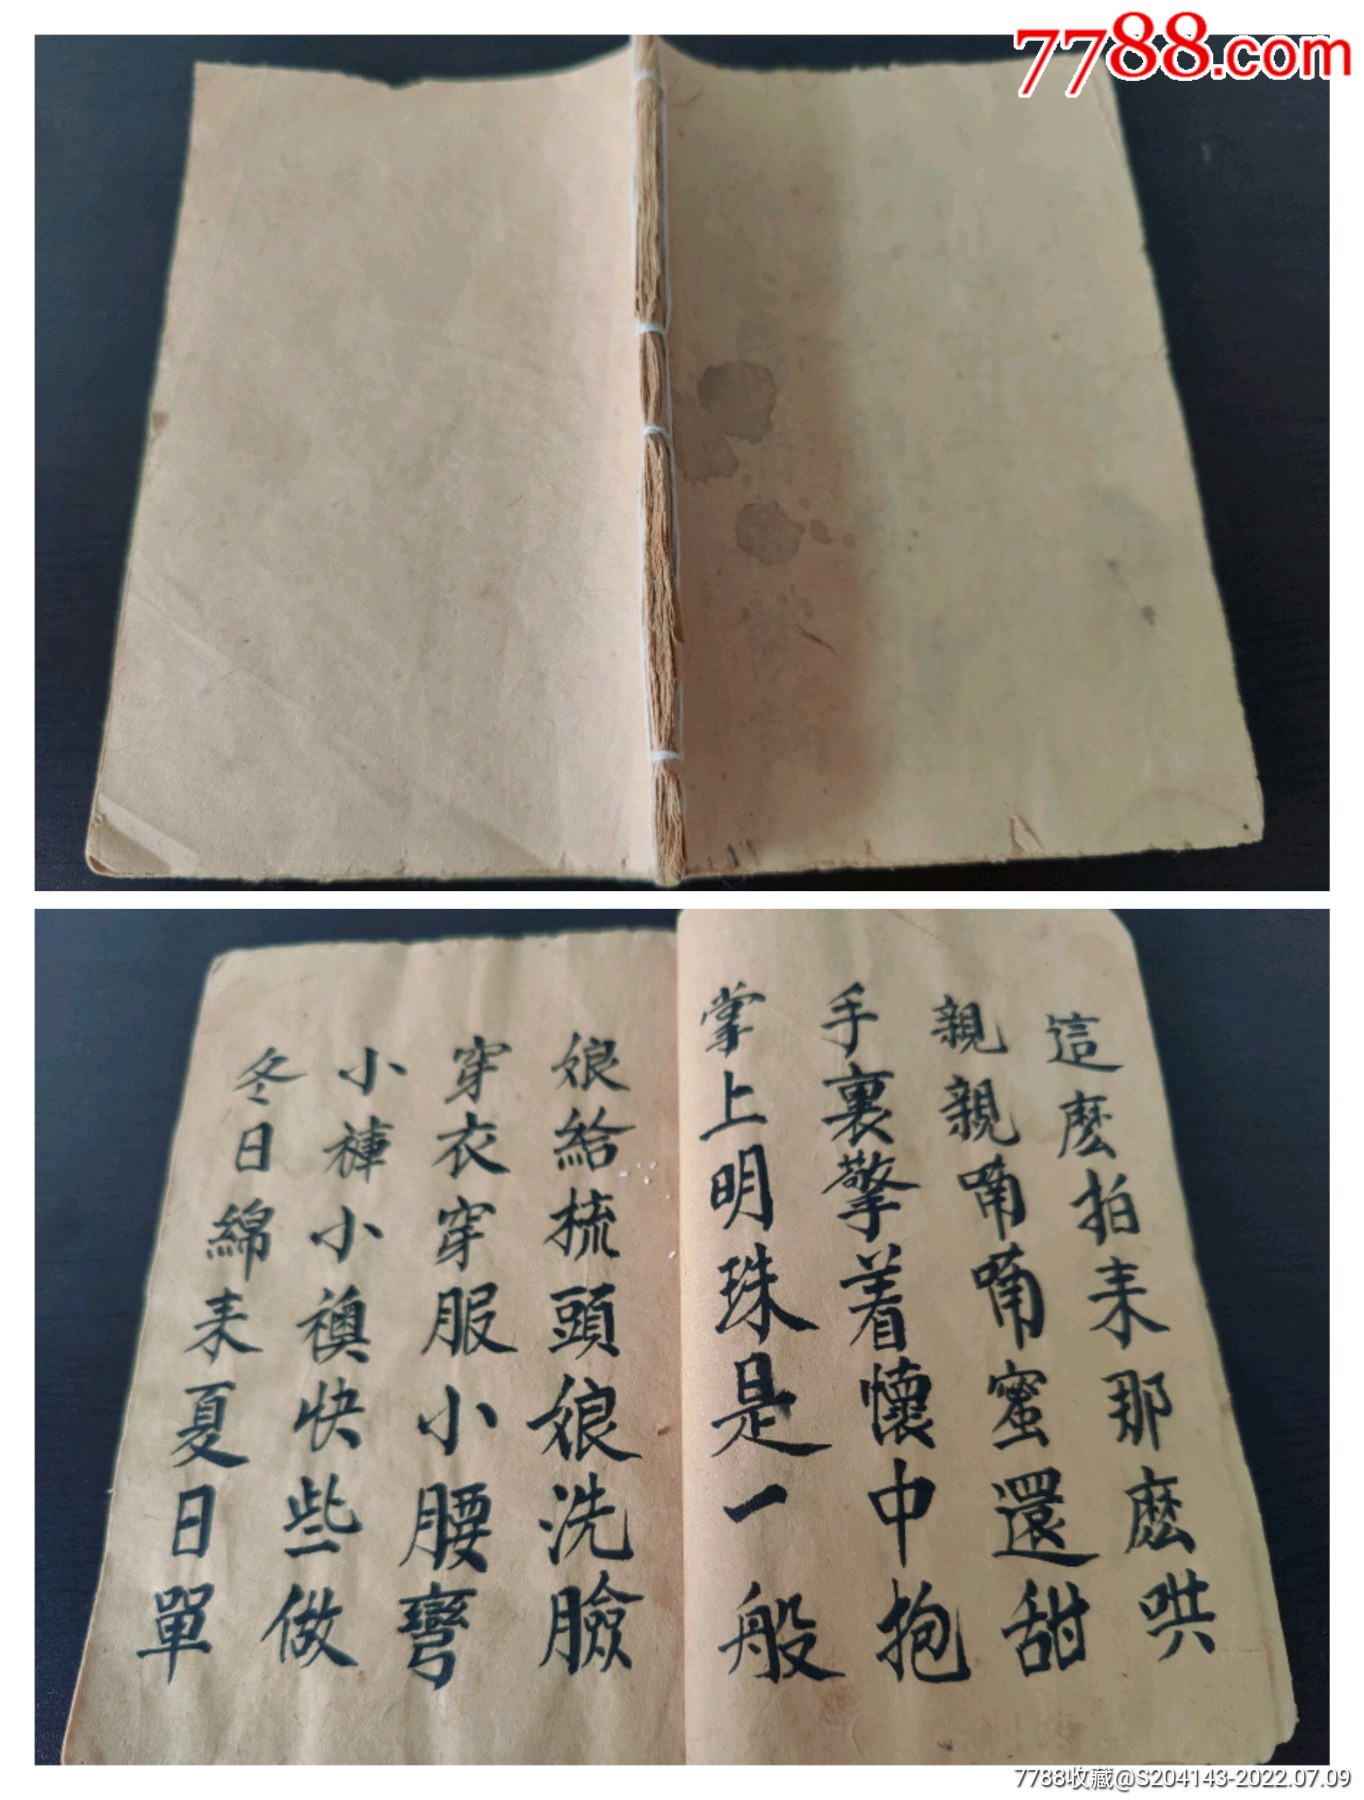 7788.com
這麽拍耒那麽哄
親親喃喃蜜還甜
手裏擎着懷中抱
掌上明珠是一般
娘給梳頭娘洗臉
穿衣穿服小腰彎
小褲小襖快些做
冬日綿耒夏日單
7788收藏@S204143-2022.07.09